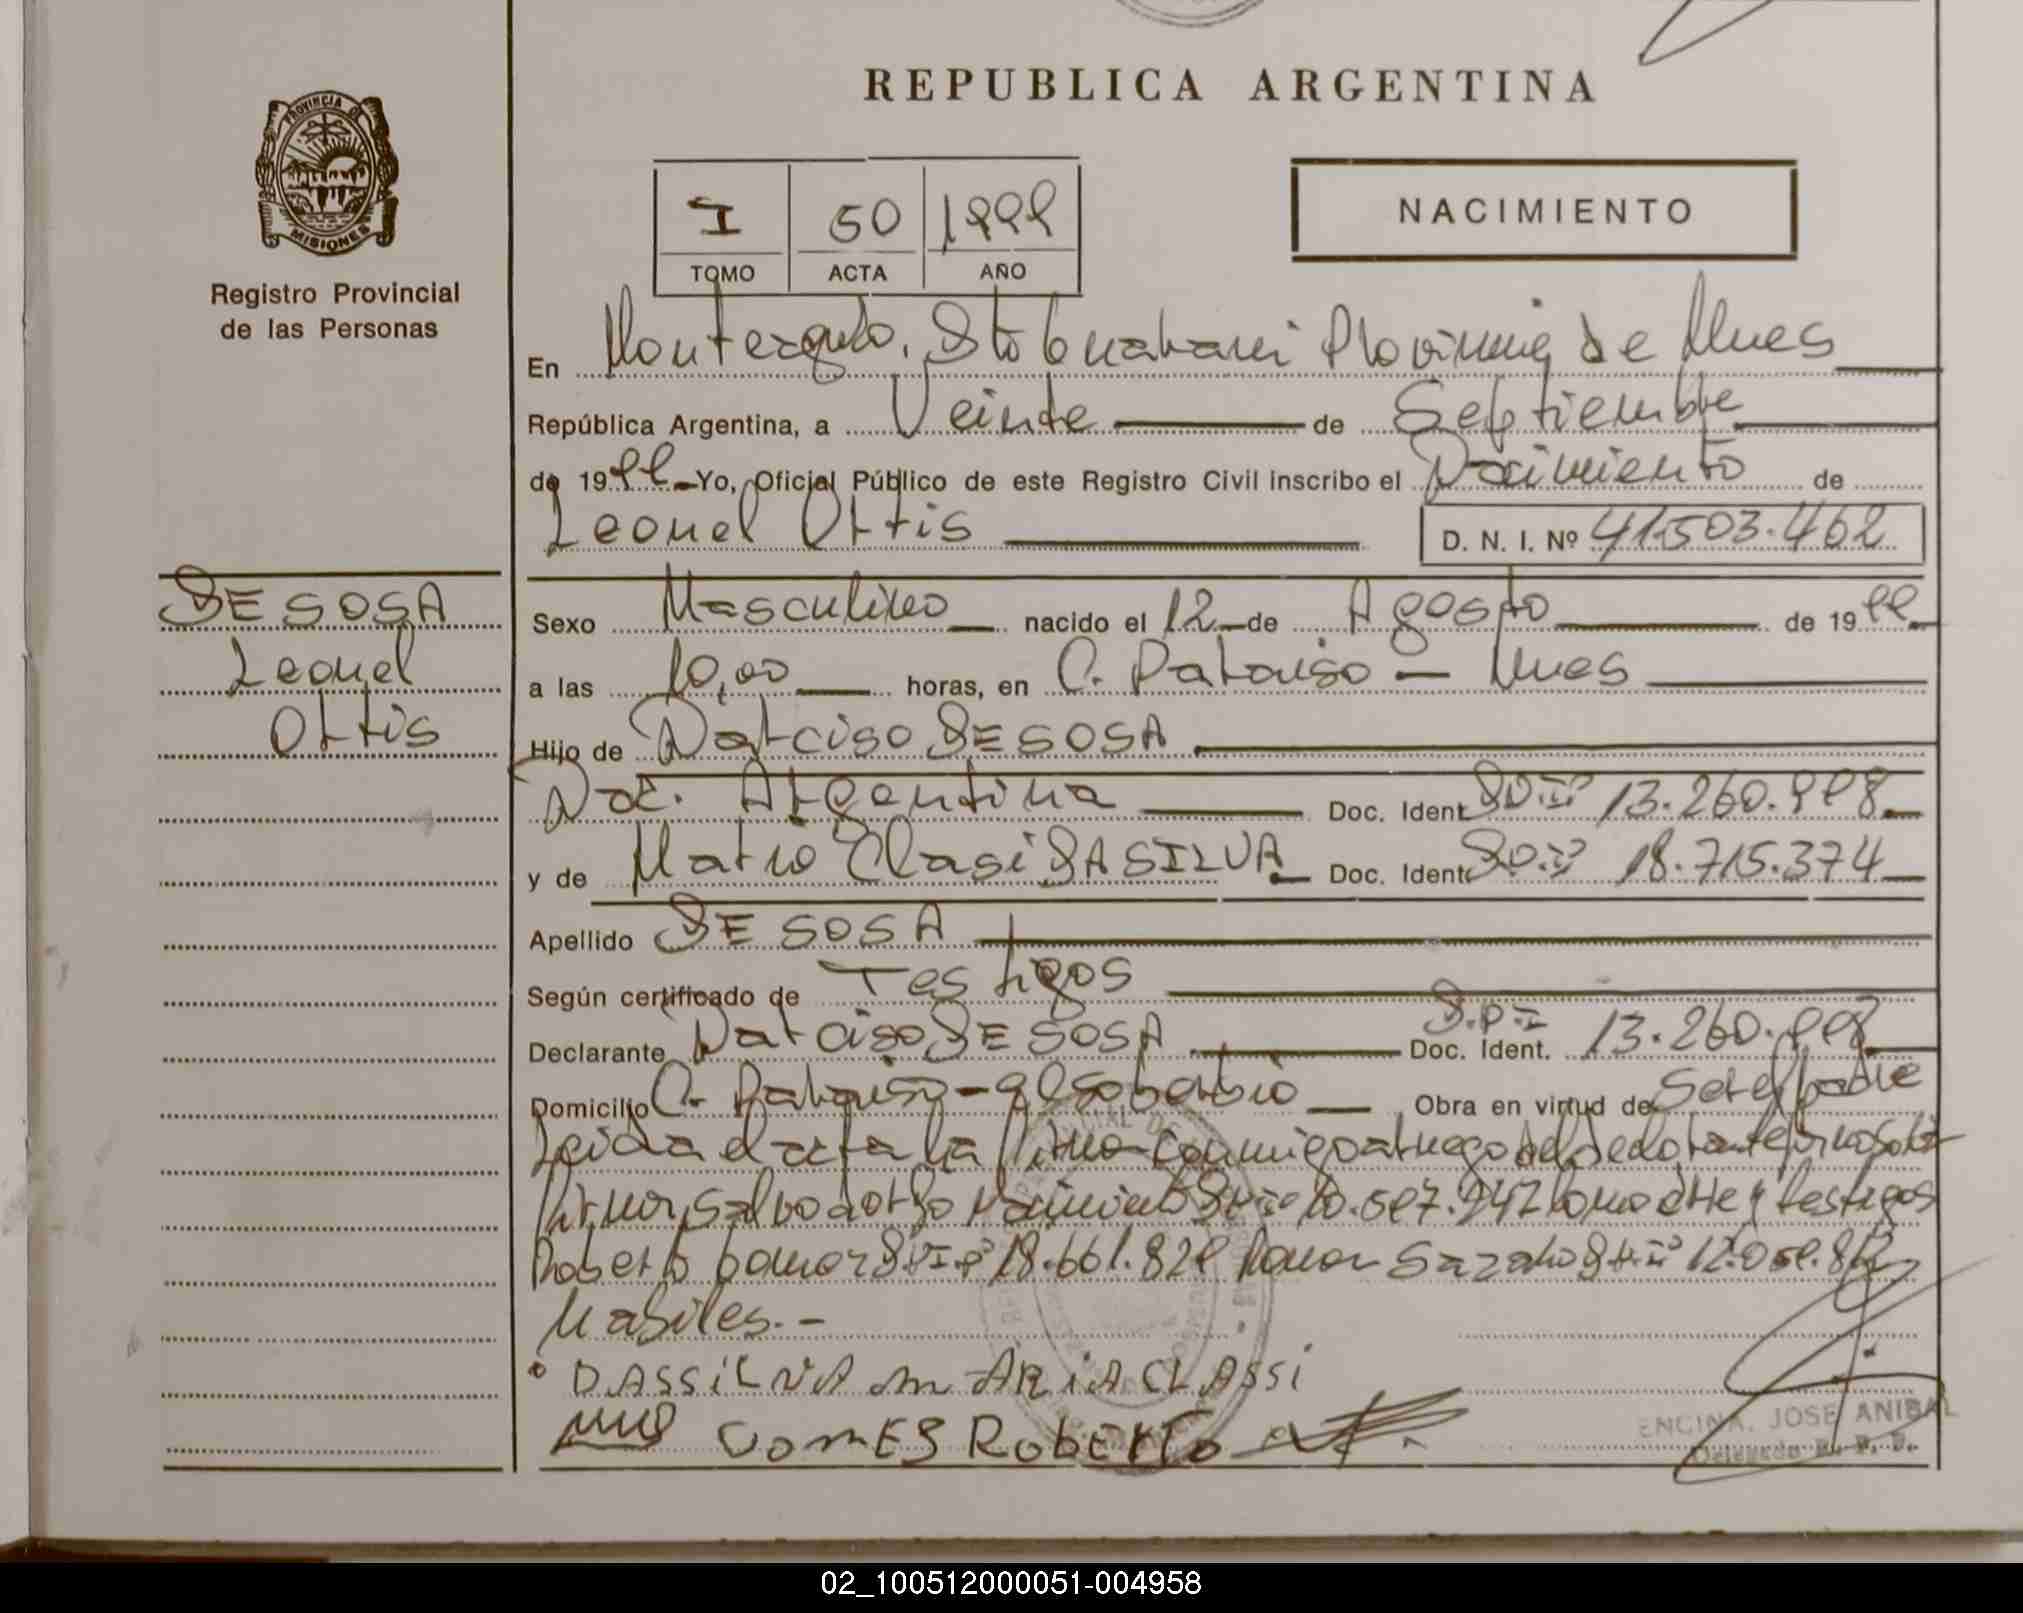 REPUBLICA ARGENTINA
PROVINCIA DE MISIONES
Registro Provincial
de las Personas
I 50 1999
TOMO ACTA AÑO
NACIMIENTO
En Provincia de Mnes
República Argentina, a Veinte de Septiembre
de 1999 Yo, Oficial Público de este Registro Civil inscribo el Nacimiento de
Leonel Ortis D. N. I. Nº 41.503.462
DE SOSA
Leonel
Ortis
Sexo Masculino nacido el 12 de Agosto de 1999
a las 10,00 horas, en C. Paraiso - Mnes
Hijo de Narciso DE SOSA
Nac. Argentina Doc. Ident. 13.260.998
y de Maria Clasi DA SILVA Doc. Ident. 18.715.374
Apellido DE SOSA
Según certificado de Testigos
Declarante Narciso DE SOSA Doc. Ident. D.N.I 13.260.998
Domicilio C. Paraiso - Obra en virtud de Ser el padre
Leida el acta la firma conmigo a ruego del
Roberto 18.661.829
habiles.-
DASSiLVA mARiA CLASSi
GomES RobERTo
ENCINA, JOSE ANIBAL
Delegado R. P. P.
02_100512000051-004958